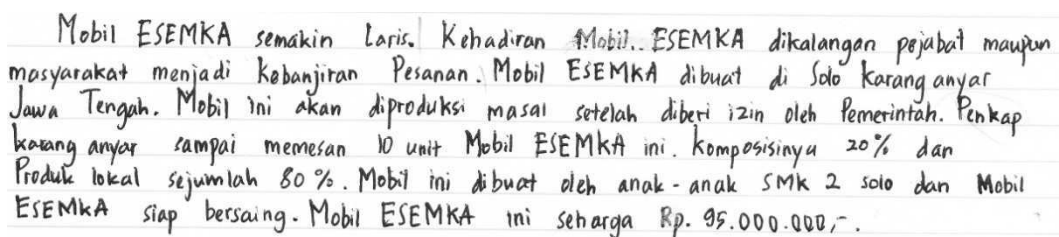 Mobil ESEMKA semakin laris. Kehadiran Mobil.. ESEMKA dikalangan pejabat maupun
masyarakat menjadi kebanjiran Pesanan. Mobil ESEMKA dibuat di Solo karang anyar
Jawa Tengah. Mobil ini akan diproduksi masal setelah diberi izin oleh Pemerintah. Penkap
karang anyar sampai memesan 10 unit Mobil ESEMKA ini. komposisinya 20% dan
Produk lokal sejumlah 80%. Mobil ini dibuat oleh anak-anak SMK 2 solo dan Mobil
ESEMKA siap bersaing. Mobil ESEMKA ini seharga Rp. 95.000.000,-.